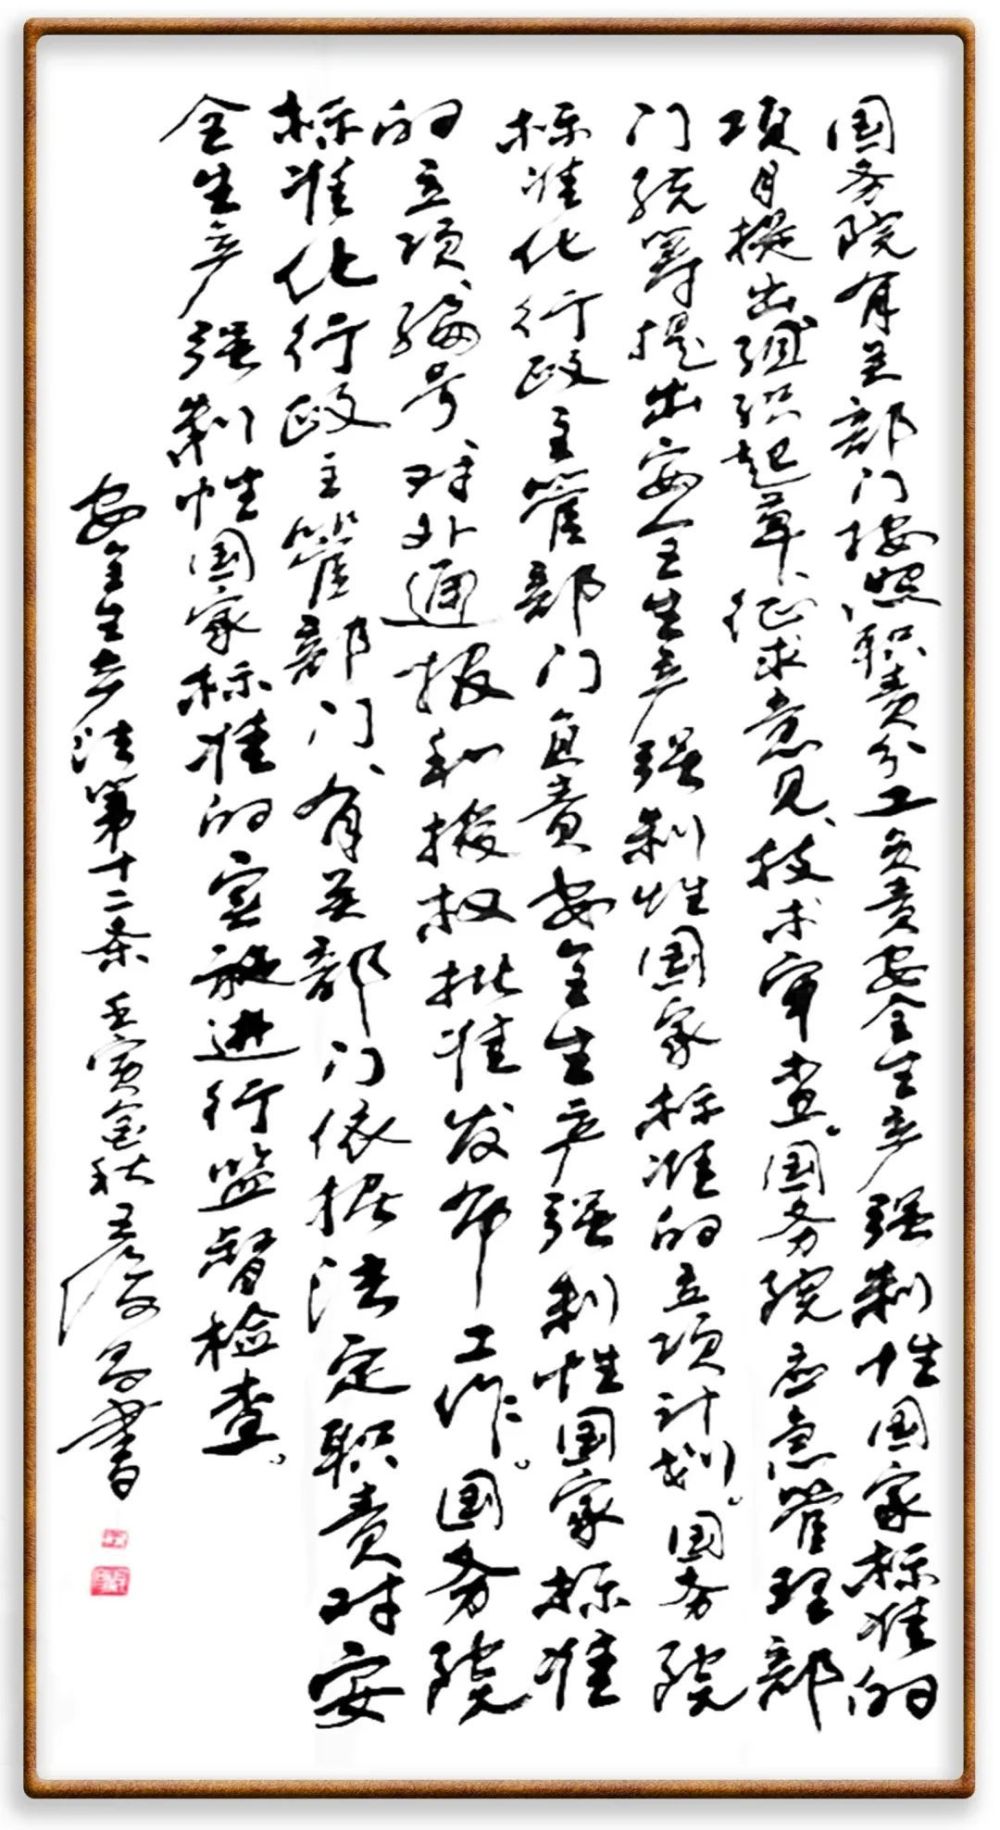 国务院有关部门按照职责分工负责安全生产强制性国家标准的
项目提出、组织起草、征求意见、技术审查。国务院应急管理部
门统筹提出安全生产强制性国家标准的立项计划。国务院
标准化行政主管部门负责安全生产强制性国家标准
的立项、编号、对外通报和授权批准发布工作。国务院
标准化行政主管部门、有关部门依据法定职责对安
全生产强制性国家标准的实施进行监督检查。
安全生产法第十二条 壬寅金秋 书